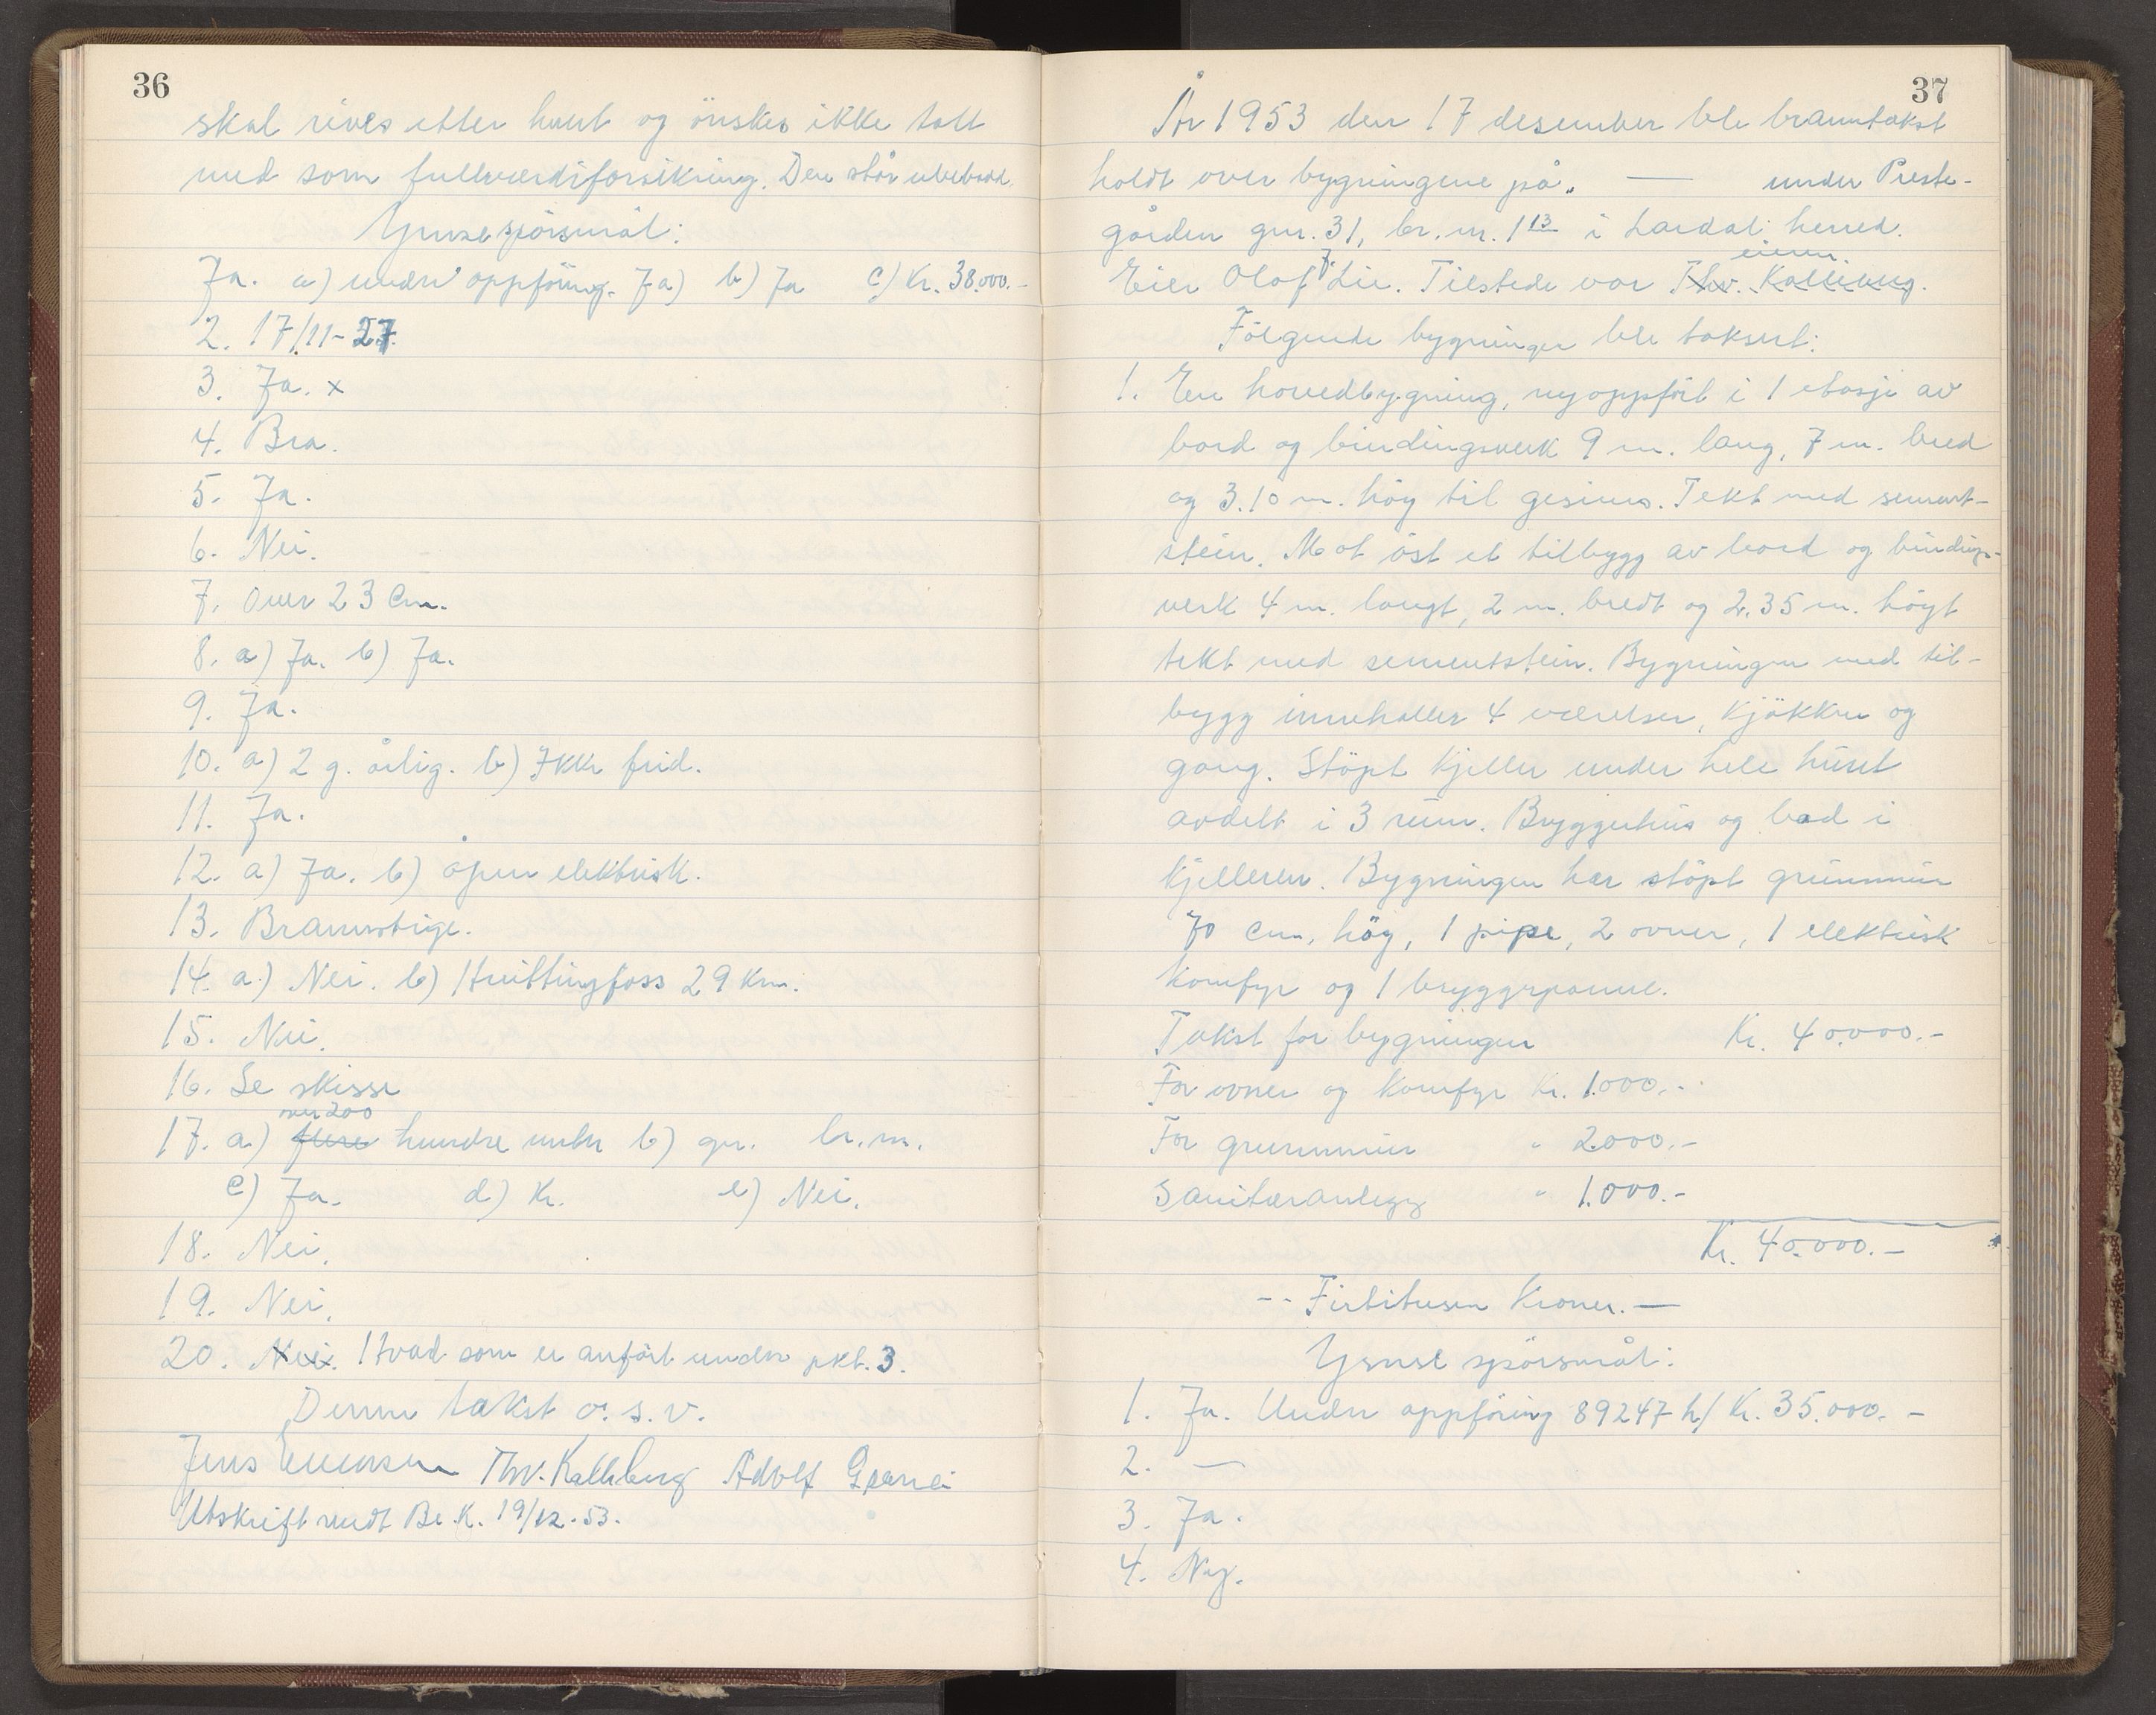 36
skal rives etter hvert og ønskes ikke tatt
med som fullverdiforsikring. Den står ubebodd.
Ymse spörsmål:
Ja. a) under oppföring. Ja) b) Ja c) Kr. 38.000.-
2. 17/11-27.
3. Ja. x
4. Bra.
5. Ja.
6. Nei.
7. Over 23 Cm.
8. a) Ja. b) Ja.
9. Ja.
10. a) 2 g. årlig. b) Ikke frid.
11. Ja.
12. a) Ja. b) åpen elektrisk.
13. Brannstige.
14. a) Nei. b) Hvittingfoss 29 Km.
15. Nei.
16. Se skisse
over 200
17. a) flere hundre meter b) gr. br.nr.
c) Ja. d) Kr. e) Nei.
18. Nei.
19. Nei.
20. Nei. Hvad som er anfört under pkt. 3.
Denne takst o.s.v.
Jens Evensen Thv. Kalleberg Adolf
Utskrift sendt Br.K. 19/12.53.
37
År 1953 den 17 desember ble branntakst
holdt over bygningene på „ — under Preste-
gården gnr. 31, br.nr. 1 13 i Lardal herred.
eieren
Eier Olaf J. Lie. Tilstede var Thv. Kalleberg.
Fölgende bygninger ble taksert:
1. En hovedbygning, nyoppfört i 1 etasje av
bord og bindingsverk 9 m. lang, 7 m. bred
og 3.10 m. höy til gesims. Tekt med sement-
stein. Mot öst et tilbygg av bord og bindings-
verk 4 m. langt, 2 m. bredt og 2.35 m. höyt
tekt med sementstein. Bygningen med til-
bygg inneholder 4 værelser, Kjökken og
gang. Stöpt Kjeller under hele huset
avdelt i 3 rum. Bryggerhus og bad i
Kjelleren. Bygningen har stöpt grunnmur
70 Cm. höy, 1 pipe, 2 ovner, 1 elektrisk
Komfyr og 1 bryggepanne.
Takst for bygningen Kr. 40.000.-
For ovner og Komfyr Kr. 1.000.-
For grunnmur " 2.000.-
Sanitæranlegg " 1.000.-
Kr. 40.000.-
-- Firtitusen Kroner. —
Ymse spörsmål:
1. Ja. Under oppföring 89247 h/ Kr. 35.000.-
2. —
3. Ja.
4. Ny.